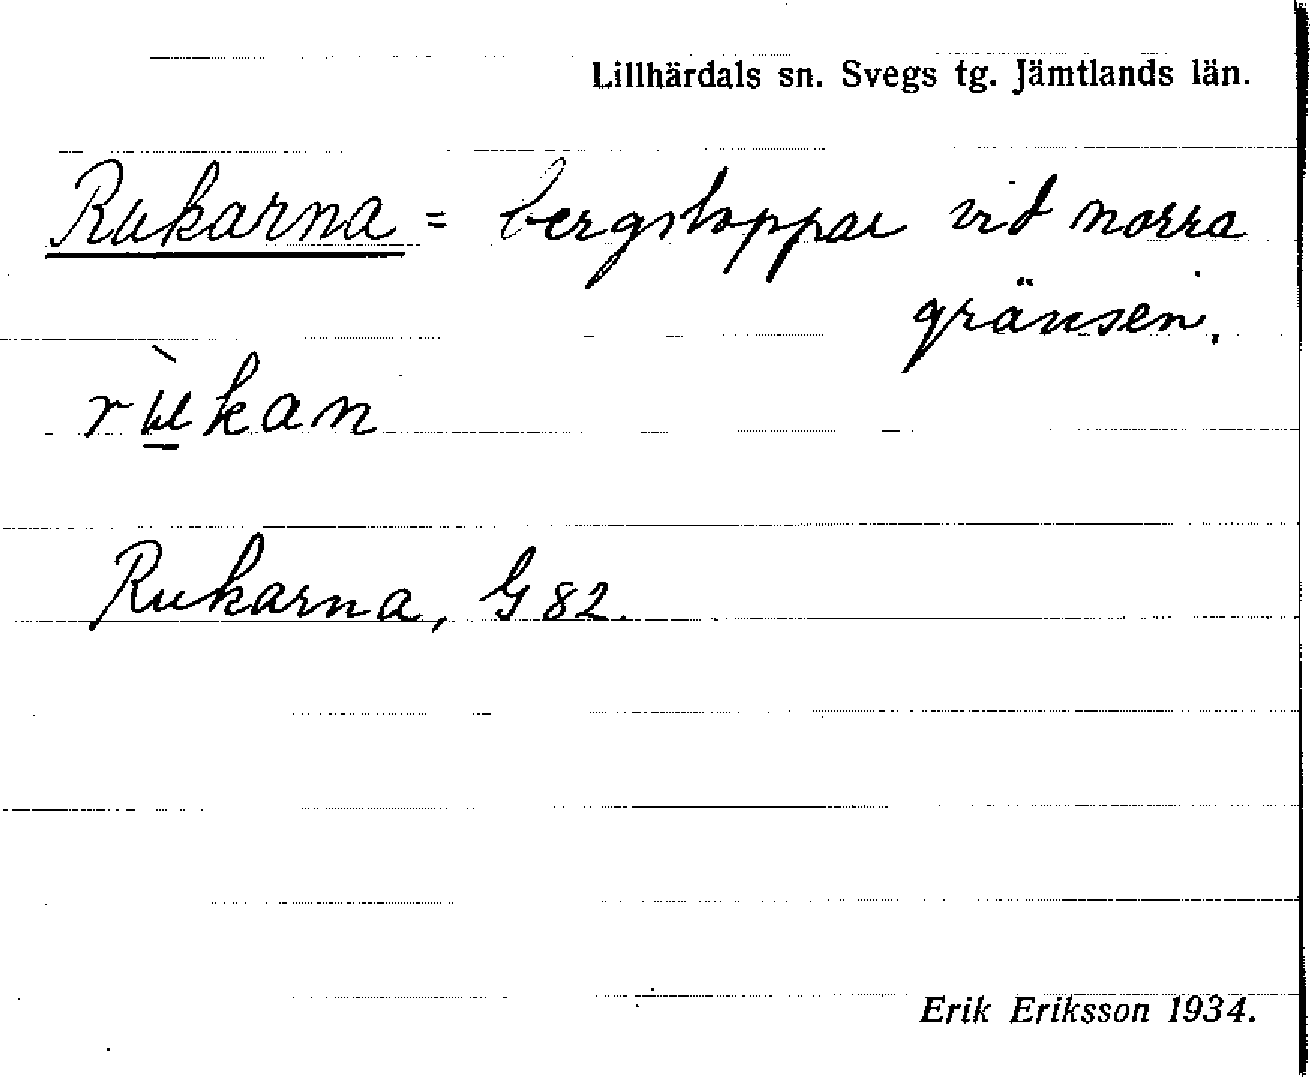 Lillhärdals sn. Svegs tg. Jämtlands län.
Rukarna = bergstoppar vid norra
gränsen.
rùkan
Rukarna, G 82.
Erik Eriksson 1934.